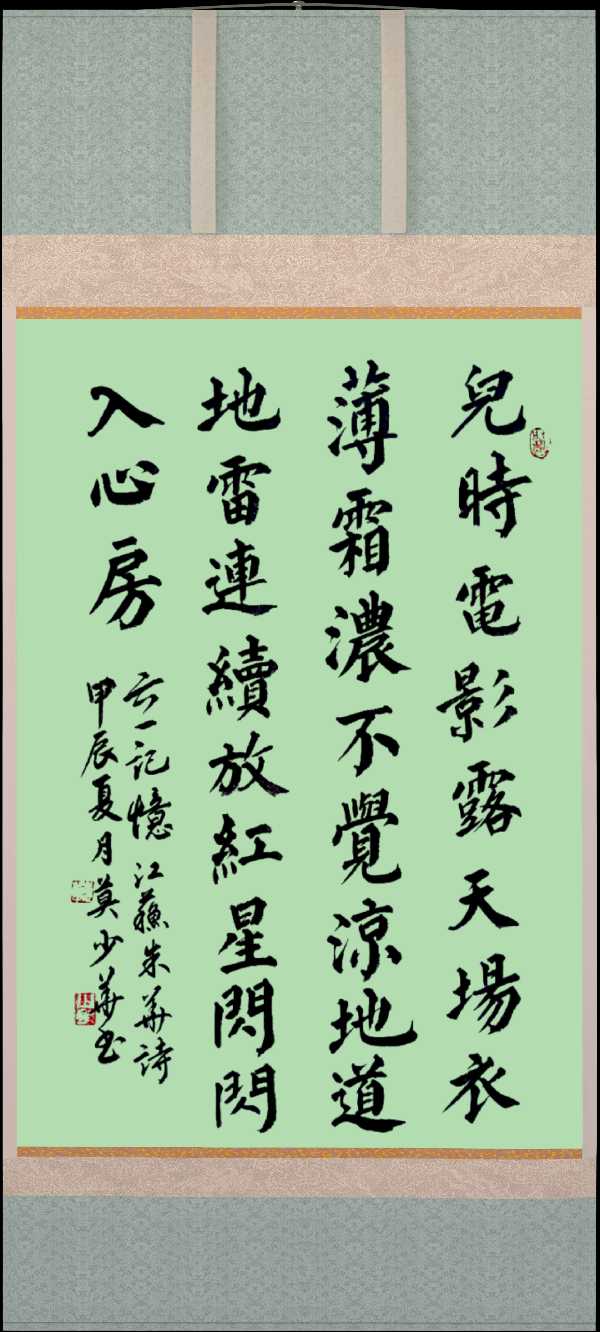 兒時電影露天場衣
薄霜濃不覺涼地道
地雷連續放紅星閃閃
入心房
六一記憶江蘇朱華詩
甲辰夏月莫少華書